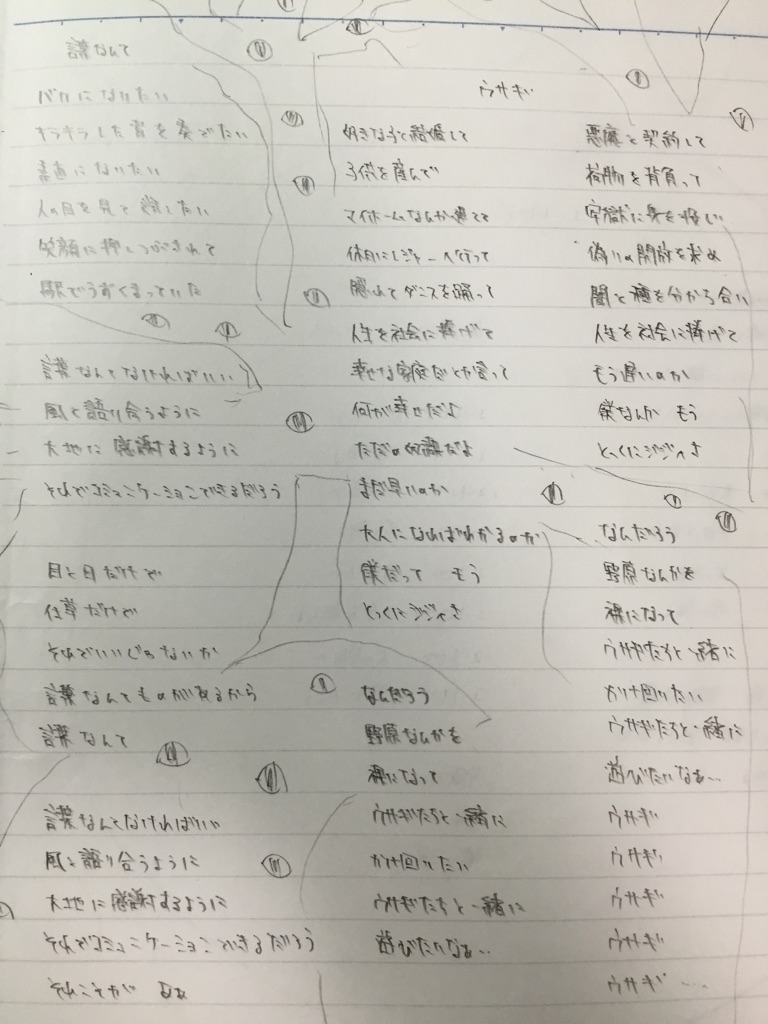 言葉なんて
バカになりたい
キラキラした音を奏でたい
素直になりたい
人の目を見て話したい
笑顔に押しつぶされて
駅でうずくまっていた
言葉なんてなければいい
風と語り合うように
大地に感謝するように
それでコミュニケーションできるだろう
目と目だけで
仕草だけで
それでいいじゃないか
言葉なんてものがあるから
言葉なんて
言葉なんてなければいい
風と語り合うように
大地に感謝するように
それでコミュニケーションできるだろう
それこそが なぁ
ウサギ
好きな子と結婚して
子供を産んで
マイホームなんか建てて
休日にレジャーへ行って
踊って
人生を社会に捧げて
幸せな家庭だとか言って
何が幸せだよ
ただの奴隷だよ
まだ早いのか
大人になればわかるのか
僕だって もう
とっくにジジイさ
なんだろう
野原なんかを
裸になって
ウサギたちと一緒に
かけ回りたい
ウサギたちと一緒に
遊びたいなぁ…
悪魔と契約して
荷物を背負って
牢獄に身を
偽りの開放を求め
闇と種を分かち合い
人生を社会に捧げて
もう遅いのか
僕なんか もう
とっくにジジイさ
なんだろう
野原なんかを
裸になって
ウサギたちと一緒に
かけ回りたい
ウサギたちと一緒に
遊びたいなぁ…
ウサギ
ウサギ
ウサギ
ウサギ
ウサギ…